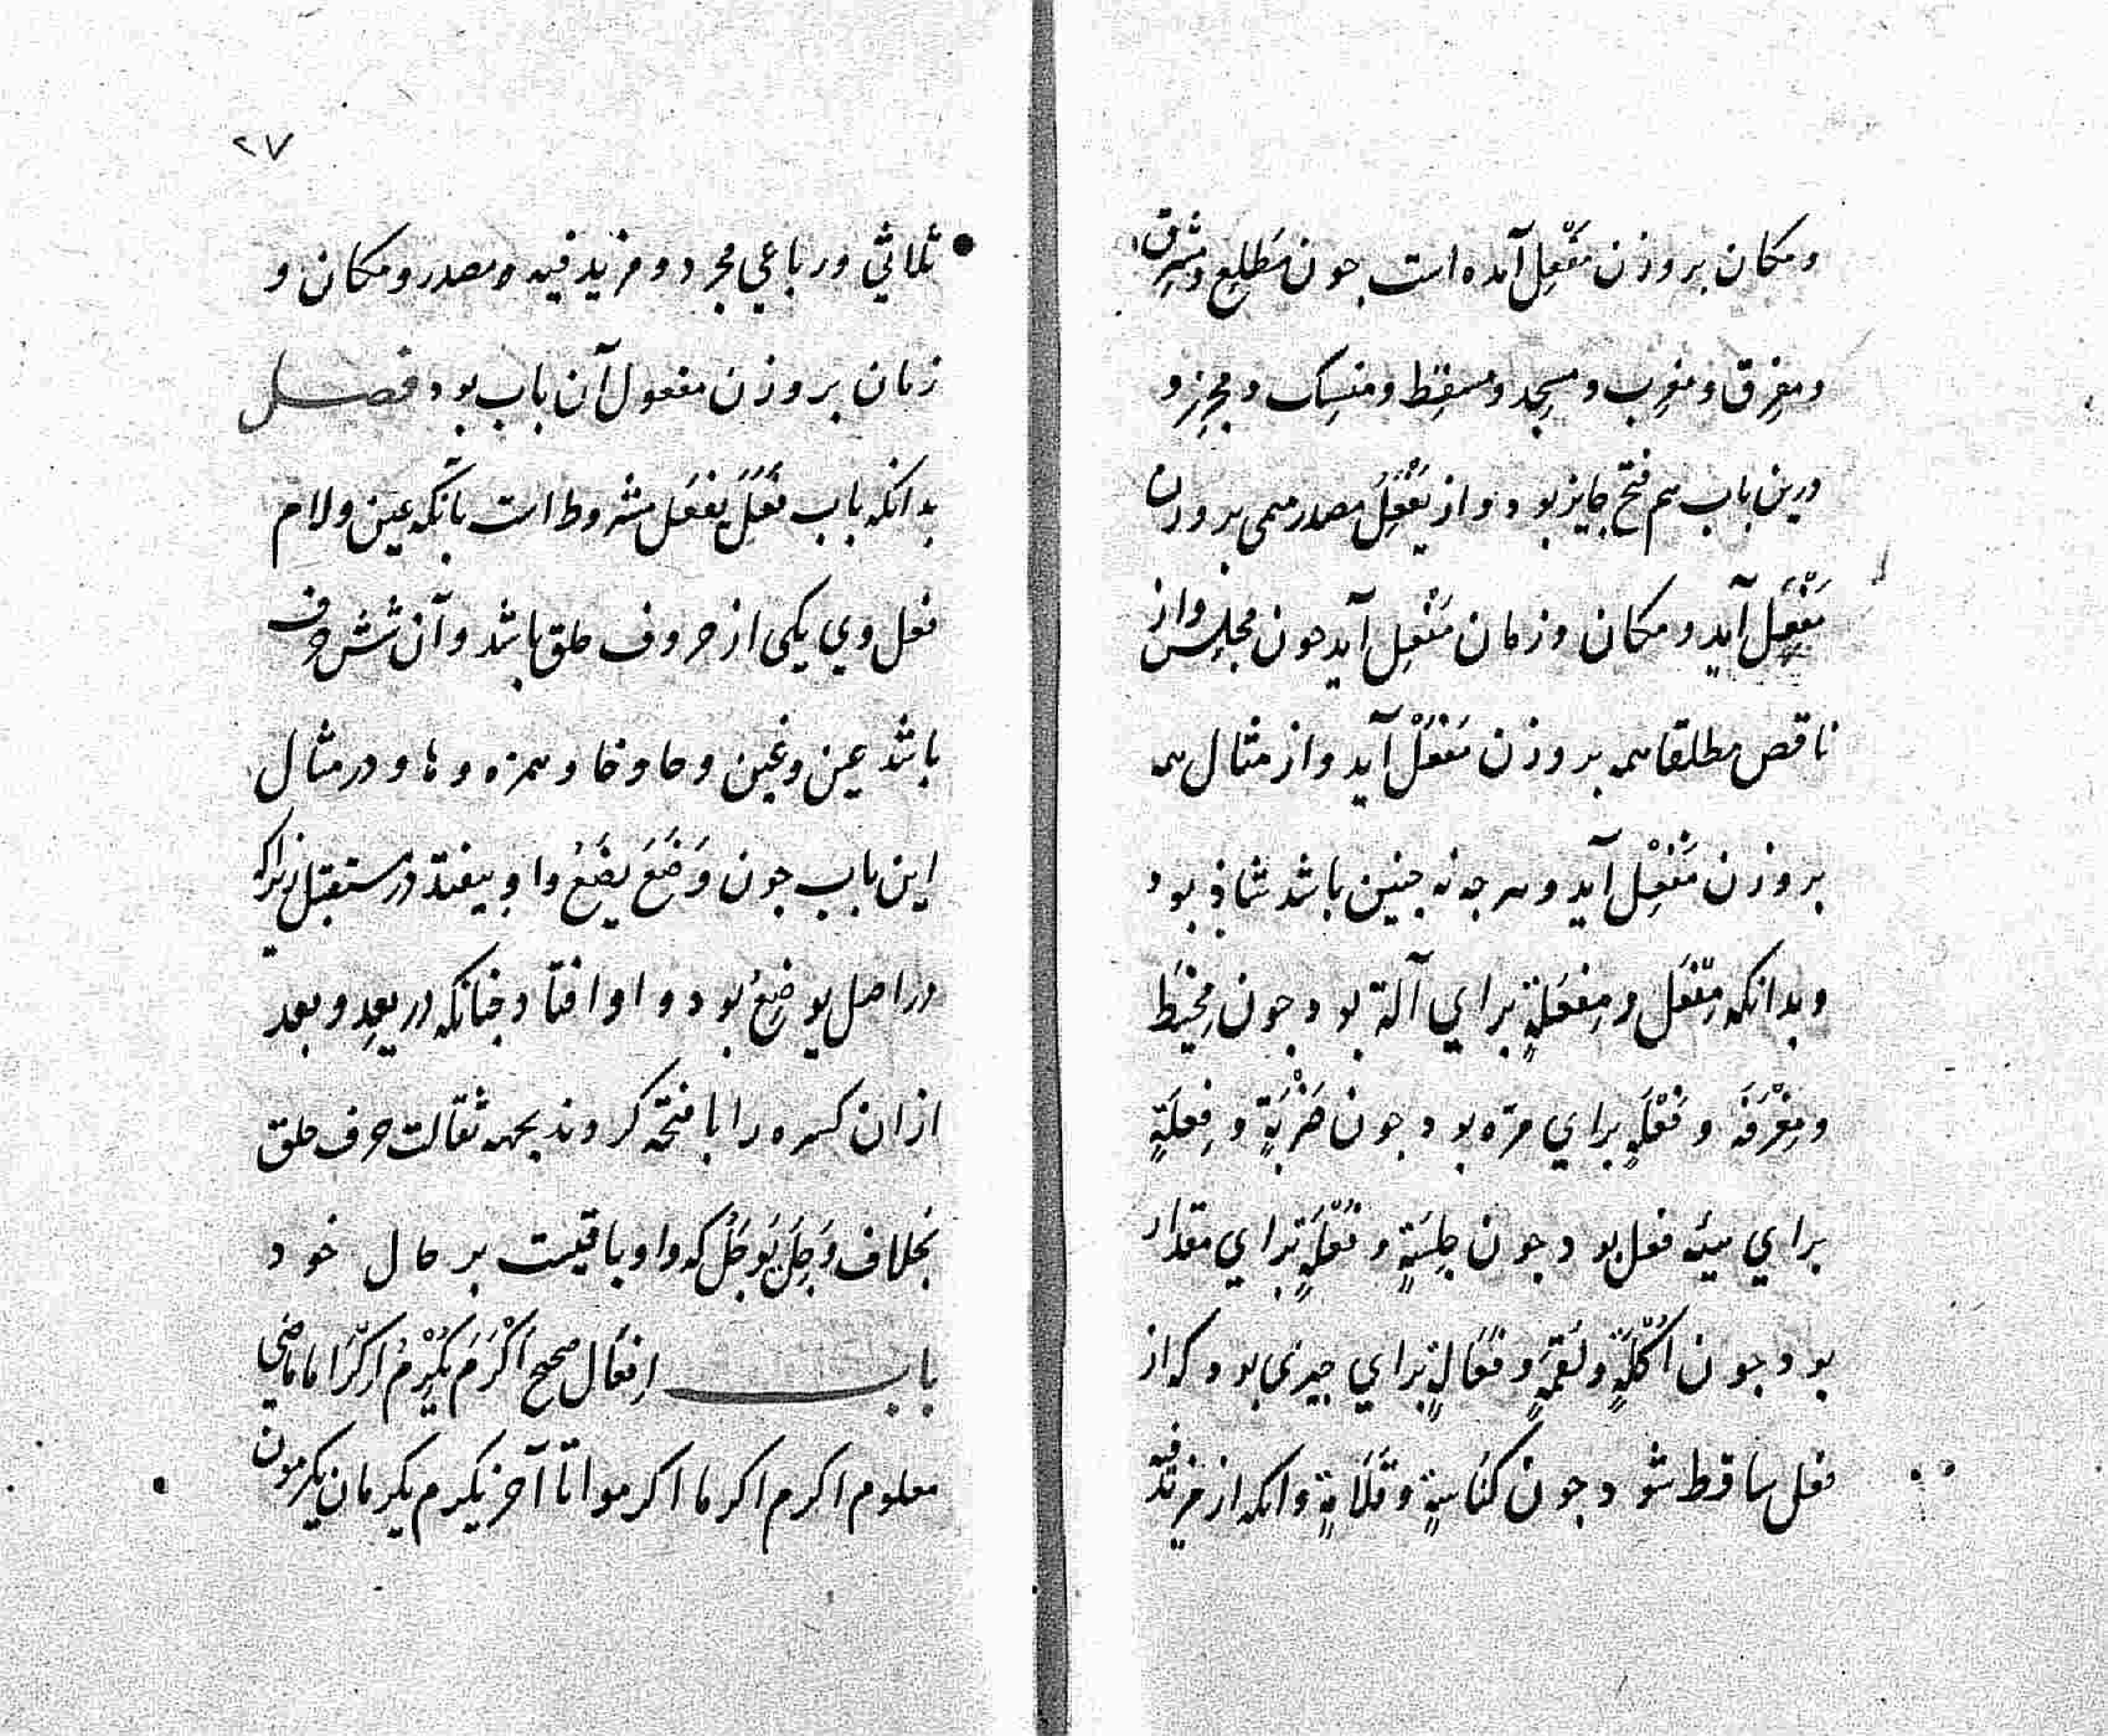 ومکان بر وزن مَفْعِل آمده است جون مَطلِع ومشرِق
ومفرِق ومغرِب ومسجِد ومسقِط ومنسِک ومجزِر و
درین باب هم فتح جایز بود واز یَفْعِلُ مصدر میمی بر وزن
مَفْعَل آید ومکان وزمان مَفْعِل آید جون مجلِس واز
ناقص مطلقا همه بر وزن مَفْعَلْ آید واز مثال همه
بر وزن مَفْعِلْ آید وهر جه نه جنین باشد شاذ بود
وبدانکه مِفْعَل ومِفعَلةٍ برای آلة بود جون مِخیَط
ومِغْرَفَة وفَعْلَةٍ برای مرّه بود جون ضَرْبَةٍ وفِعلَةٍ
برای هیئة فعل بود جون جِلسَةٍ وفُعْلَةٍ برای مقدار
بود جون اُکْلَةٍ ولُقمَةٍ وفُعَالةٍ برای جیزی بود که از
فعل ساقط شود جون کُنَاسةٍ وقُلَامَةٍ وانکه از مزید فیه
۲۷
ثلاثي ورباعي مجرد ومزید فیه ه مصدر ومکان و
زمان بر وزن مفعول آن باب بود فصل
بدانکه باب فَعَلَ یَفعَل مشروط است بآنکه عین ولام
فعل وي یکی از حروف حلق باشد وآن شش حرف
باشد عین وغین وحا وخا وهمزه وها ودر مثال
این باب جون وَضَعَ یضَعُ واو بیفتد در مستقبل زیراکه
در اصل یوضِعُ بود واو افتاد جنانکه در یعِد وبعد
ازان کسره را با فتحه کردند بجهه ثقالت حرف حلق
بخلاف وَجِلَ یَوجَلُ که واو باقیست بر حال خود
باب اِفعَال صحیح اَکْرَمَ یُکْرِمُ اِکْرَاما ماضی
معلوم اکرم اکرما اکرموا تا آخر یکرم یکرمان یکرمون